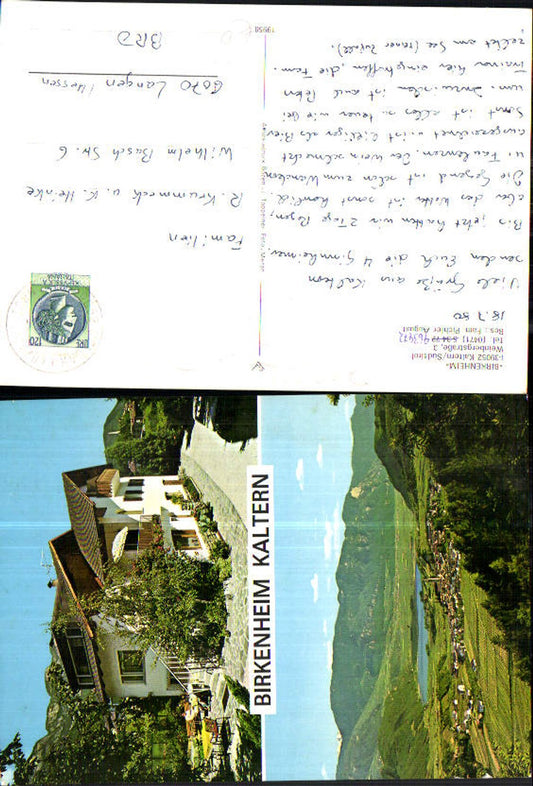 »BIRKENHEIM«
I-39052 Kaltern/Südtirol
Weinbergstraße, 3
Tel. (0471) 963472
Bes.: Fam. Pichler August
18.7.80
Viele Grüße aus Kaltern
senden Euch die 4 Ginnheimer.
Bis jetzt hatten wir 2 Tage Regen,
aber das Wetter ist sonst herrlich.
Die Gegend ist schön zum Wandern
u. Faulenzen. Der Wein schmeckt
ausgezeichnet u. ist billiger als Bier
Sonst ist alles so teuer wie bei
uns. Inzwischen ist auch Peter
hier eingetroffen, die Fam.
zeltet am See (reiner Zufall).
Familien
R. Krummeck u. K. Heinke
Wilhelm Busch Str. 6
6070 Langen / Hessen
BRD
LIRE 120
19958
BIRKENHEIM KALTERN